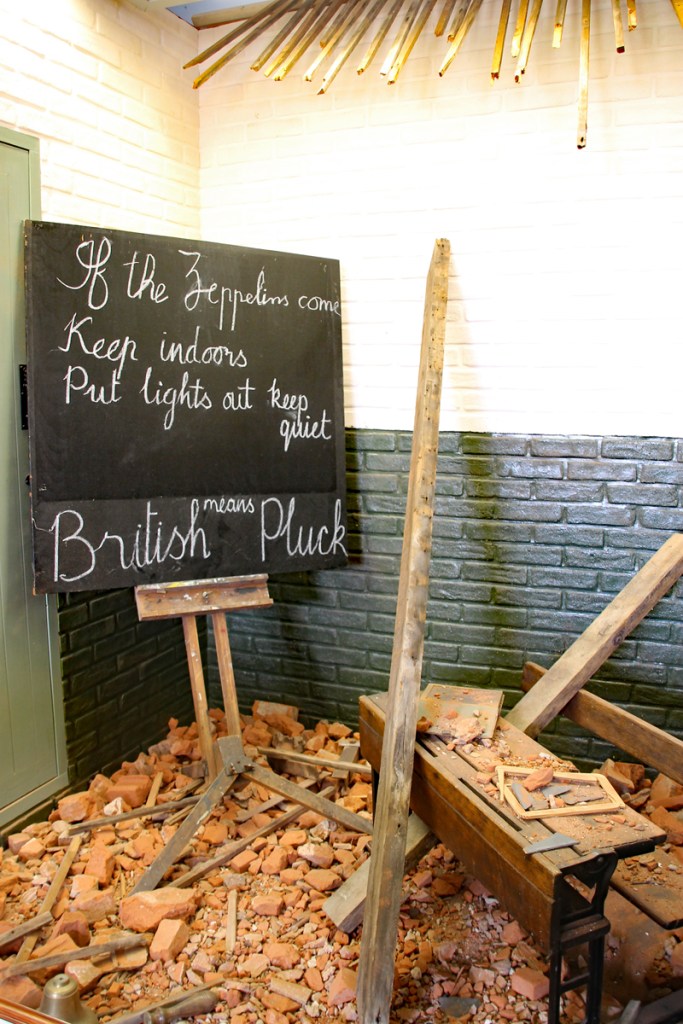 If the Zeppelins come
Keep indoors
Put lights out keep
quiet
British means Pluck